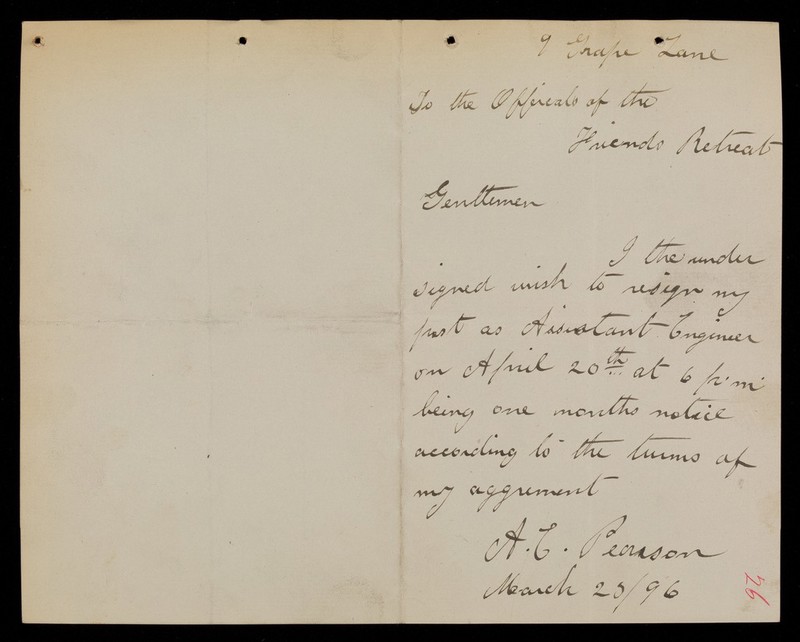 9 Grape Lane
To the Officeals of the
Friends Retreat
Gentlemen
I the under
signed wish to resign my
post as Assistant Engineer
on April 20th at 6 p.m
being one months notice
according to the terms of
my aggrement
A. E. Pearson
March 23/96
26